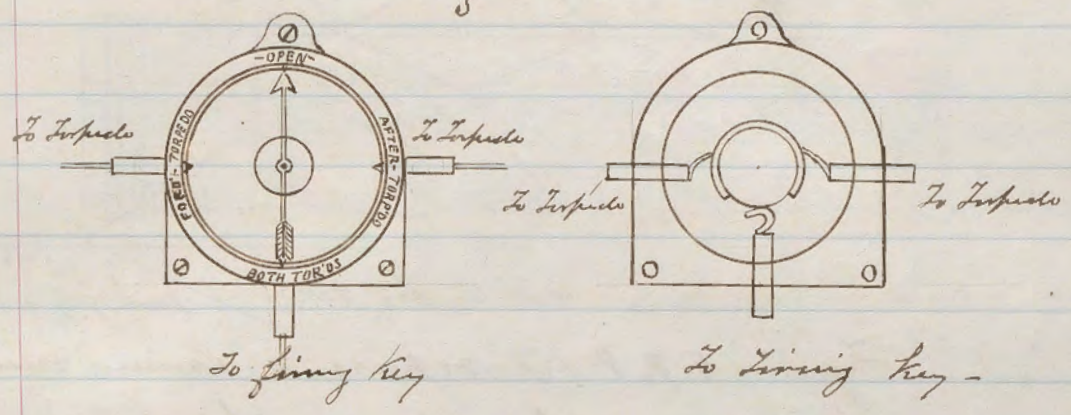 -OPEN-
FOR'D-TORPEDO
AFTER-TORP'DO
BOTH TOR'DS
To Torpedo
To Torpedo
To firing Key
To Torpedo
To Torpedo
To Firing Key -